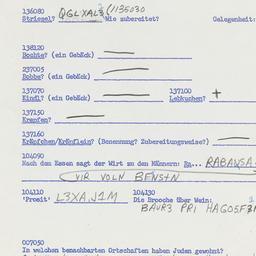 136080
Striesel? QGLXAL3(/1135030 Wie zubereitet? Gelegenheit:
138120
Bochte? (ein Gebäck)
237005
Bobbe? (ein Gebäck)
137070 137100
Kindl? (ein Gebäck) Lebkuchen? +
137150
Krapfen?
137160
Kröpfchen/Kröpflein? (Benennung? Zubereitungsweise?)
104090
Nach dem Essen sagt der Wirt zu den Männern: Ra... RABAUSA
VIR VOLN BENSTN
104110 104130
'Profit' L3XA.J1M Die Broche über Wein:
BAUR3 PRI HAGO5F3
007050
In welchen benachbarten Ortschaften haben Juden gewohnt?